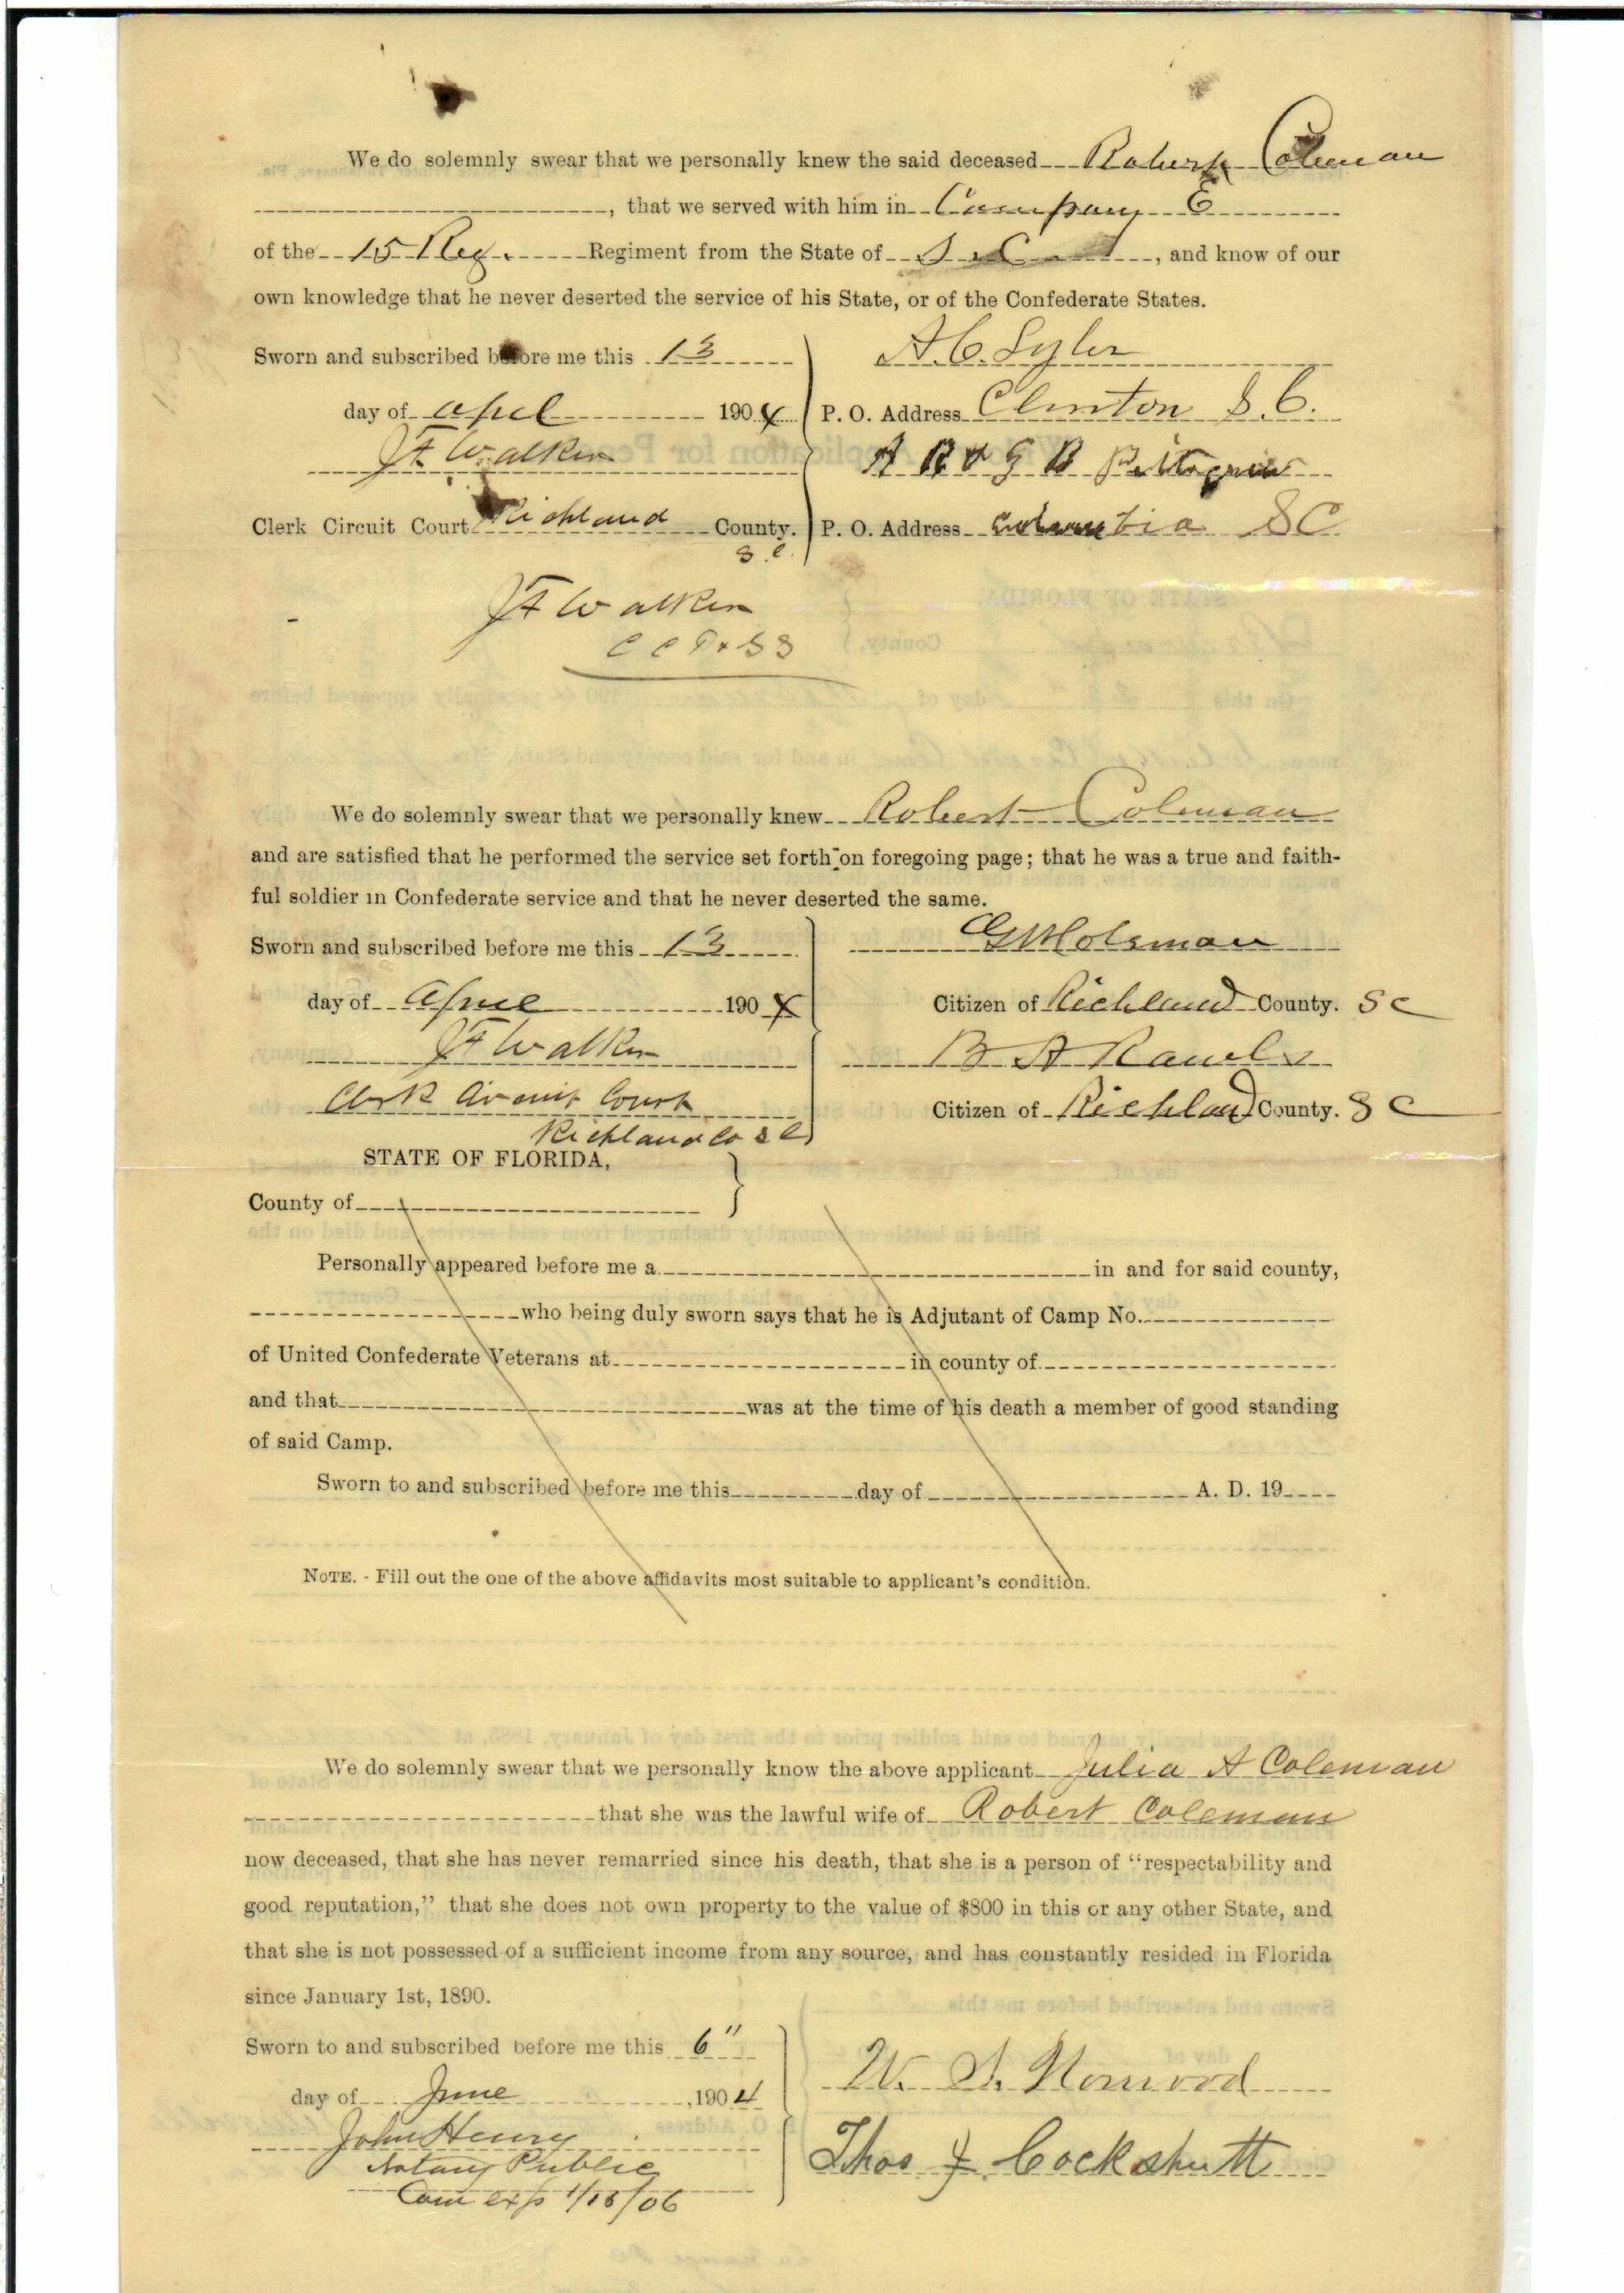 We do solemnly swear that we personally knew the said deceased Robert Coleman
, that we served with him in Company E
of the 15 Reg. Regiment from the State of S. C. , and know of our
own knowledge that he never deserted the service of his State, or of the Confederate States.
Sworn and subscribed before me this 13
A. C. Lyler
day of April 1904
P. O. Address Clinton S. C.
J F Walker
A B & G B
Clerk Circuit Court Richland County.
S. C.
P. O. Address Columbia SC
J F Walker
C C P & GS
We do solemnly swear that we personally knew Robert Coleman
and are satisfied that he performed the service set forth on foregoing page; that he was a true and faith-
ful soldier in Confederate service and that he never deserted the same.
Sworn and subscribed before me this 13
day of April 1904
Citizen of Richland County. S C
J F Walker
B A Rawls
Clerk Circuit Court
Citizen of Richland County. S C
Richland Co S C
STATE OF FLORIDA,
County of
Personally appeared before me a in and for said county,
who being duly sworn says that he is Adjutant of Camp No.
of United Confederate Veterans at in county of
and that was at the time of his death a member of good standing
of said Camp.
Sworn to and subscribed before me this day of A. D. 19
NOTE. - Fill out the one of the above affidavits most suitable to applicant's condition.
We do solemnly swear that we personally know the above applicant Julia A Coleman
that she was the lawful wife of Robert Coleman
now deceased, that she has never remarried since his death, that she is a person of "respectability and
good reputation," that she does not own property to the value of $800 in this or any other State, and
that she is not possessed of a sufficient income from any source, and has constantly resided in Florida
since January 1st, 1890.
Sworn to and subscribed before me this 6"
W. S. Norwood
day of June , 1904
John Henry
Thos J. Cockshutt
Notary Public
Com exp 1/18/06